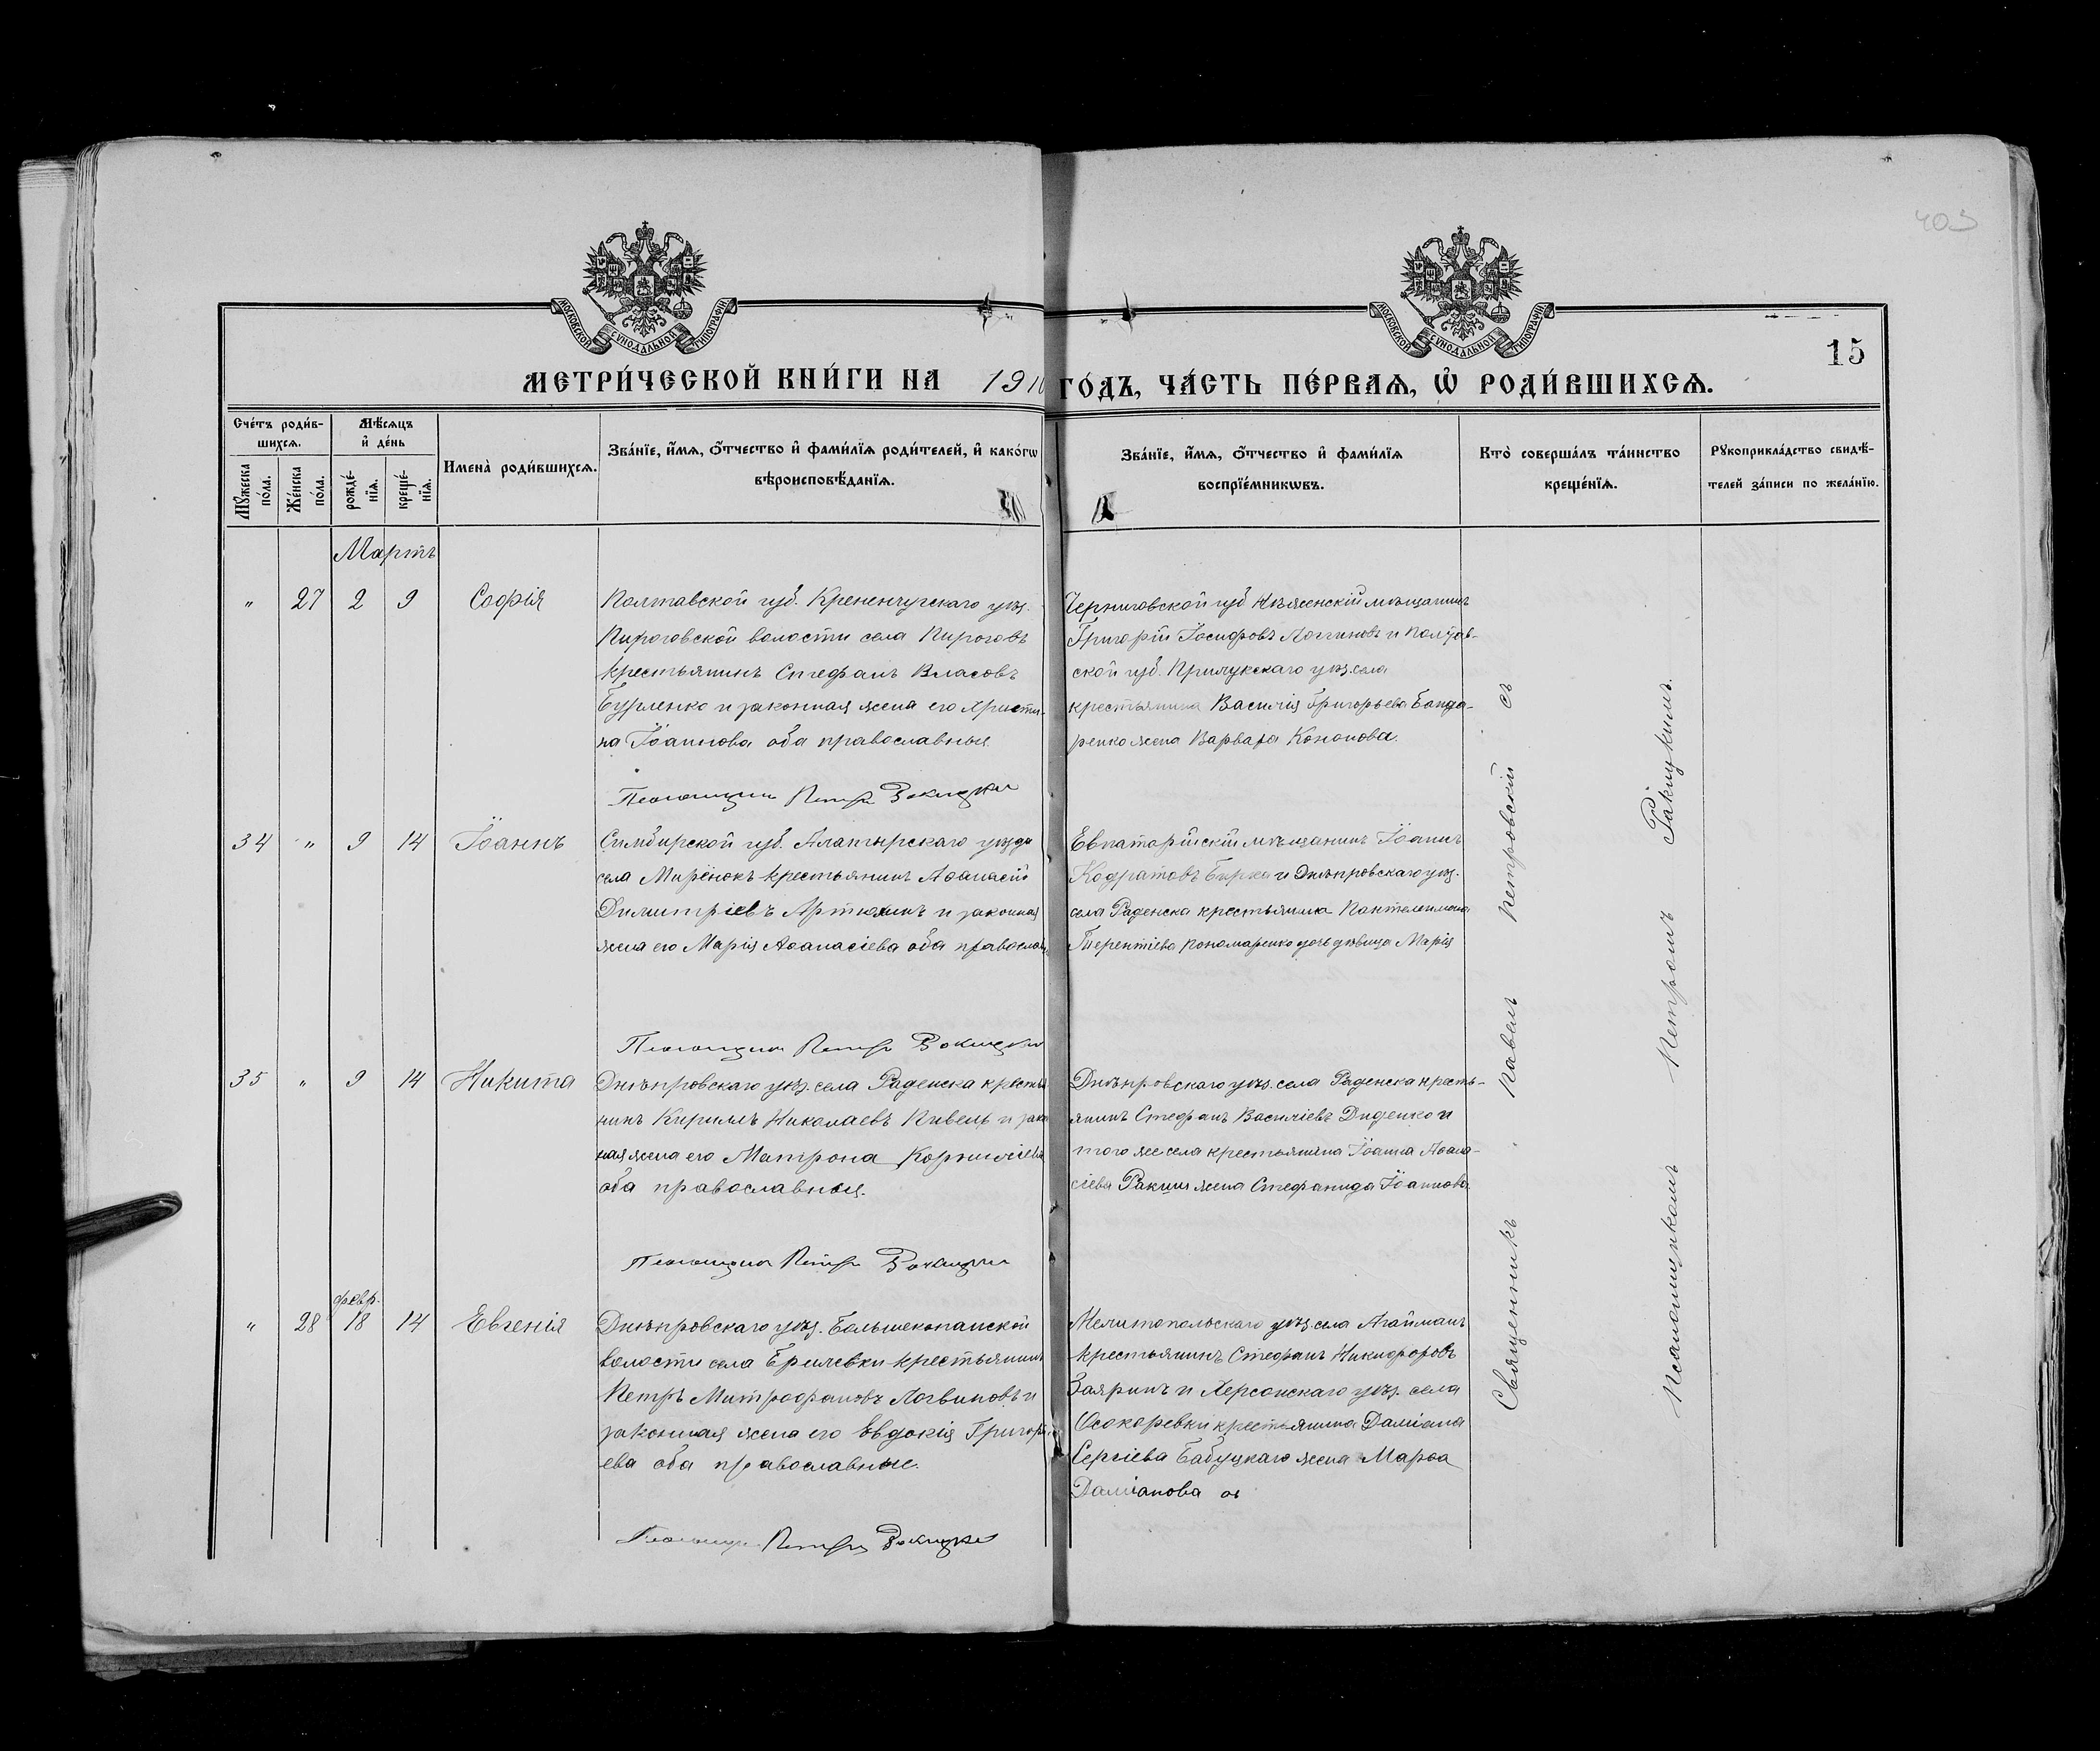 403
МОСКОВСКОЙ СѴНОДАЛЬНОЙ ТИПОГРАФІИ
МОСКОВСКОЙ СѴНОДАЛЬНОЙ ТИПОГРАФІИ
15
МЕТРИ́ЧЕСКОЙ КНИ́ГИ НА 1910
ГО́ДЪ, ЧА́СТЬ ПЕ́РВАѦ, Ѡ҆ РОДИ́ВШИХСѦ.
Сче́тъ роди́в-
шихсѧ.
Мꙋ́жеска по́ла.
Же́нска по́ла.
Мѣ́сѧцъ
и҆ де́нь
рожде́-нїѧ.
креще́-нїѧ.
Имена̀ роди́вшихсѧ.
Зва́нїе, и҆́мѧ, ѻ҆́тчество и҆ фами́лїѧ роди́телей, и҆ како́гѡ
вѣроисповѣ́данїѧ.
Зва́нїе, и҆́мѧ, ѻ҆́тчество и҆ фами́лїѧ
воспрїе́мникѡвъ.
Кто̀ соверша́лъ та́инство
креще́нїѧ.
Рꙋкоприкла́дство свидѣ́-
телей за́писи по жела́нїю.
Мартъ
" 27 2 9 Софія
Полтавской губ. Кременчугскаго уѣз.
Пироговской волости села Пироговъ
крестьянинъ Стефанъ Власовъ
Бурленко и законная жена его Христи-
на Іоаннова оба православныя
Псаломщикъ Петръ
Черниговской губ Нѣженскій мѣщанинъ
Григорій Іосифовъ Логгиновъ и Полтав-
ской губ. Прилукскаго уѣз. села
крестьянина Василія Григорьева Бонда-
ренко жена Варвара Кононова.
34 " 9 14 Іоаннъ
Симбирской губ. Алатырскаго уѣзда
села Мирёнокъ крестьянинъ Аѳанасій
Димитріевъ Артюхинъ и законная
жена его Марія Аѳанасіева оба православн
Псаломщикъ Петръ
Евпаторійскій мѣщанинъ Іоаннъ
Кодратовъ Бирка и Днѣпровскаго уѣз.
села Раденска крестьянина Пантелеимона
Терентіева Пономаренко дочь дѣвица Марія
35 " 9 14 Никита
Днѣпровскаго уѣз. села Раденска крестья
нинъ Кириллъ Николаевъ Кивель и зако
ная жена его Матрона Корниліева
оба православныя.
Псаломщикъ Петръ
Днѣпровскаго уѣз. села Раденска кресть-
янинъ Стефанъ Василіевъ Диденко и
того же села крестьянина Іоанна Аѳана-
сіева Ракши жена Стефанида Іоаннова
февр.
" 28 18 14 Евгенія
Днѣпровскаго уѣз. Большекопанской
волости села Брилевки крестьянинъ
Петръ Митрофановъ Логвиновъ и
законная жена его Евдокія Григорь
ева оба православные.
Псаломщикъ Петръ
Мелитопольскаго уѣз. села Агайманъ
крестьянинъ Стефанъ Никифоровъ
Заяринъ и Херсонскаго уѣз. села
Осокоревки крестьянина Даміана
Сергіева Бабуцкаго жена Марѳа
Даміанова
Священникъ Павелъ Петровскій съ
Псаломщикомъ Петромъ Ракицкимъ.